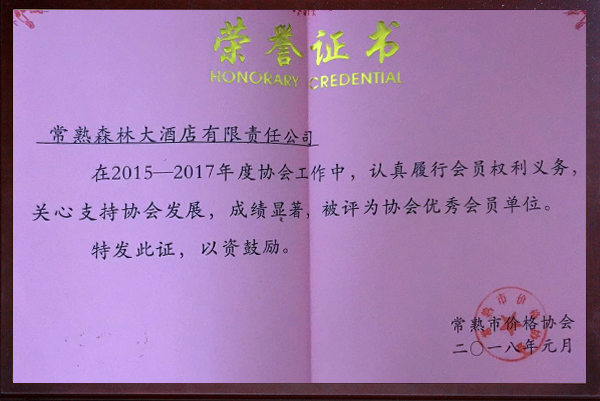 荣誉证书
HONORARY CREDENTIAL
常熟森林大酒店有限责任公司
在2015—2017年度协会工作中，认真履行会员权利义务，
关心支持协会发展，成绩显著，被评为协会优秀会员单位。
特发此证，以资鼓励。
常熟市价格协会
二〇一八年元月